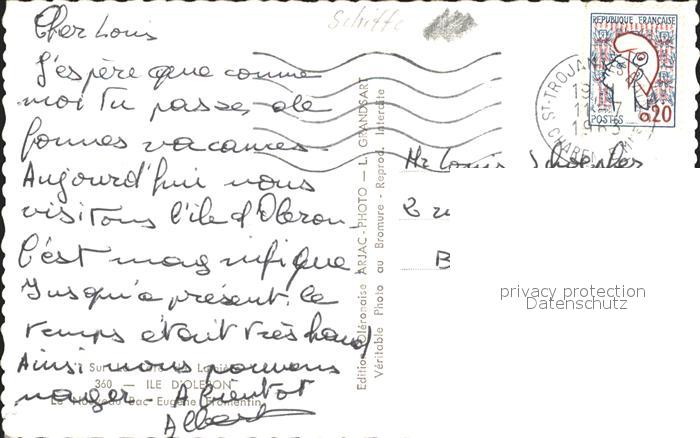 Schiffe
Cher Louis
J'espère que comme
moi tu passe, de
bonnes vacances.
Aujourd'hui nous
visitons l'île d'Oleron
C'est magnifique
Jusqu'à présent, le
temps était très chaud
Ainsi nous pouvons
nager - A bientot
Albert
360 — ILE D'OLERON
Le Nouveau Bac Eugène Fromentin
Edition Oléronaise ARJAC-PHOTO — L. GRANDSART
Véritable Photo au Bromure - Reprod. Interdite
REPUBLIQUE FRANÇAISE
0.20
POSTES
ST-TROJAN-LES
11-7
1963
Mr Louis
B
privacy protection
Datenschutz